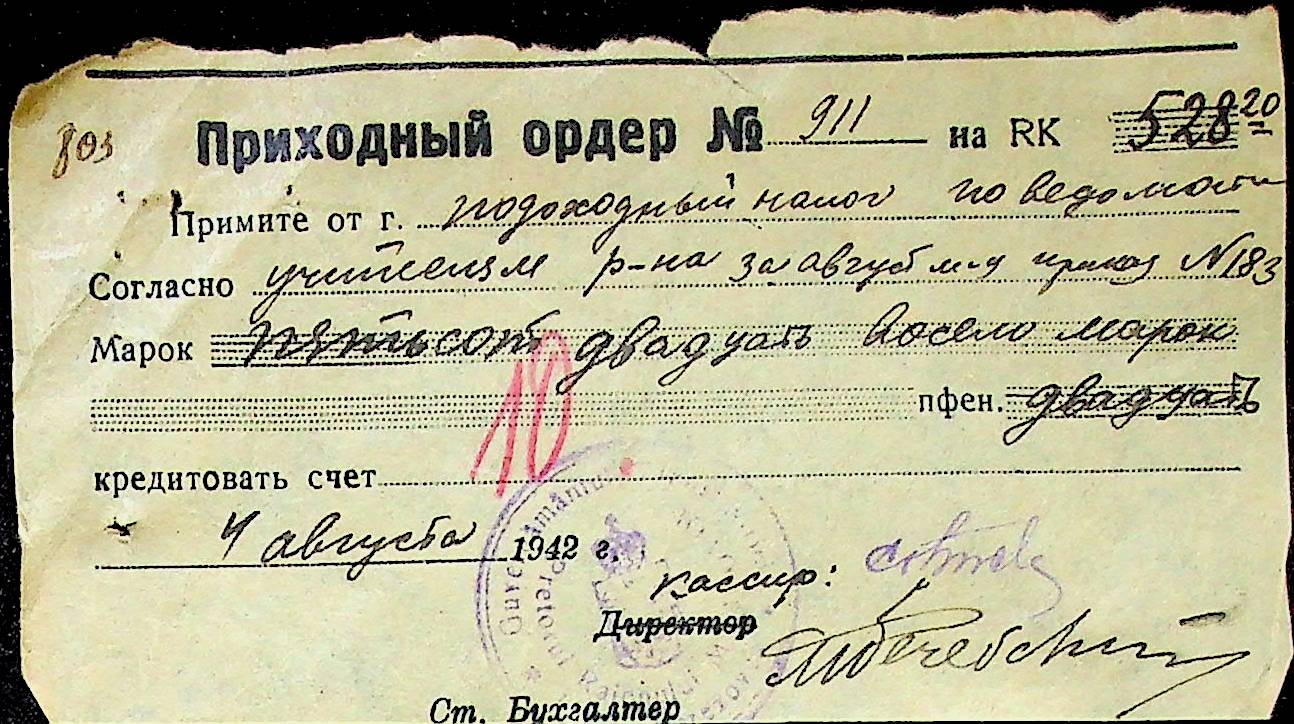 803 Приходный ордер № 911 на RK 528 20
Примите от г. подоходный налог по ведомости
Согласно учителям р-на за август м-ц приказ N183
Марок пятьсот двадцать восемь марок
пфен. двадцать
10
кредитовать счет
4 августа 1942 г.
кассир:
Директор
Ст. Бухгалтер
Guvernământul